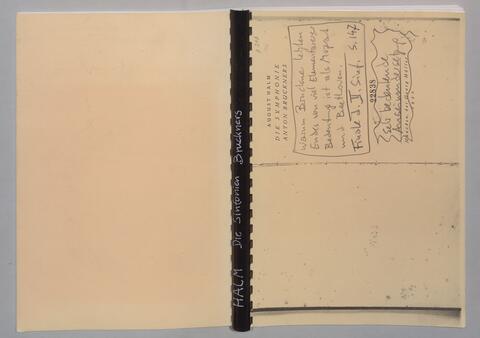 HALM Die Sinfonien Bruckners
AUGUST HALM
DIE SYMPHONIE
ANTON BRUCKNERS
Warum Bruckner letzten
Endes von viel elementarerer
Bedeutung ist als Mozart
und Beethoven.
Finale d. II. Sinf. S. 147
22838
Sehr bedeutende